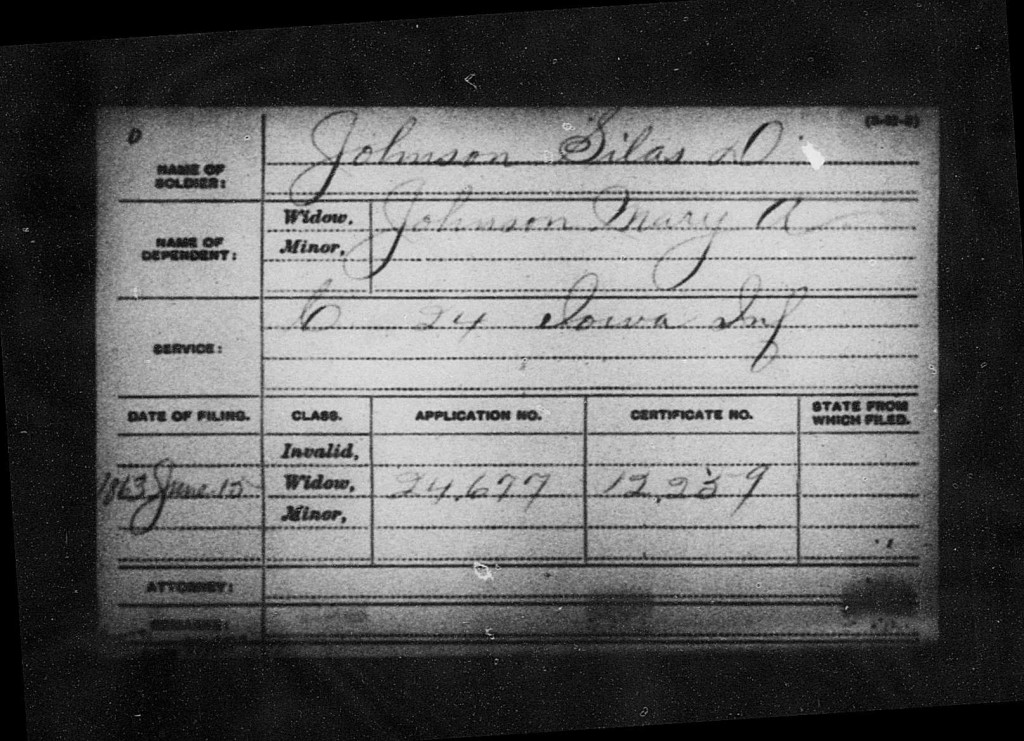 D
(3-21-8)
NAME OF SOLDIER: Johnson Silas D.
NAME OF DEPENDENT: Widow, Johnson Mary A
Minor,
SERVICE: C 24 Iowa Inf
DATE OF FILING. CLASS. APPLICATION NO. CERTIFICATE NO. STATE FROM WHICH FILED.
Invalid,
1863 June 15 Widow, 24.677 12.239
Minor,
ATTORNEY:
REMARKS: